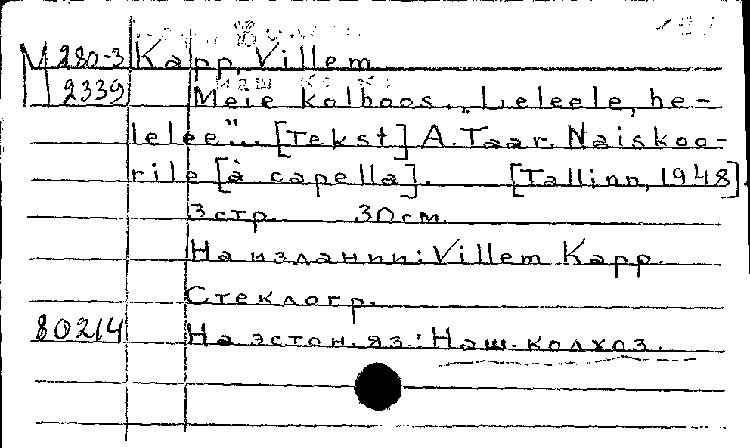 М 280-3 Kapp, Villem
2339 Meie kolhoos. „Leleele, he-
lelee"... [Tekst] A. Taar. Naiskoo-
rile [à capella]. [Tallinn, 1948].
3 стр. 30 см.
На издании: Villem Kapp.
Стеклогр.
80214 На эстон. яз.: Наш колхоз.